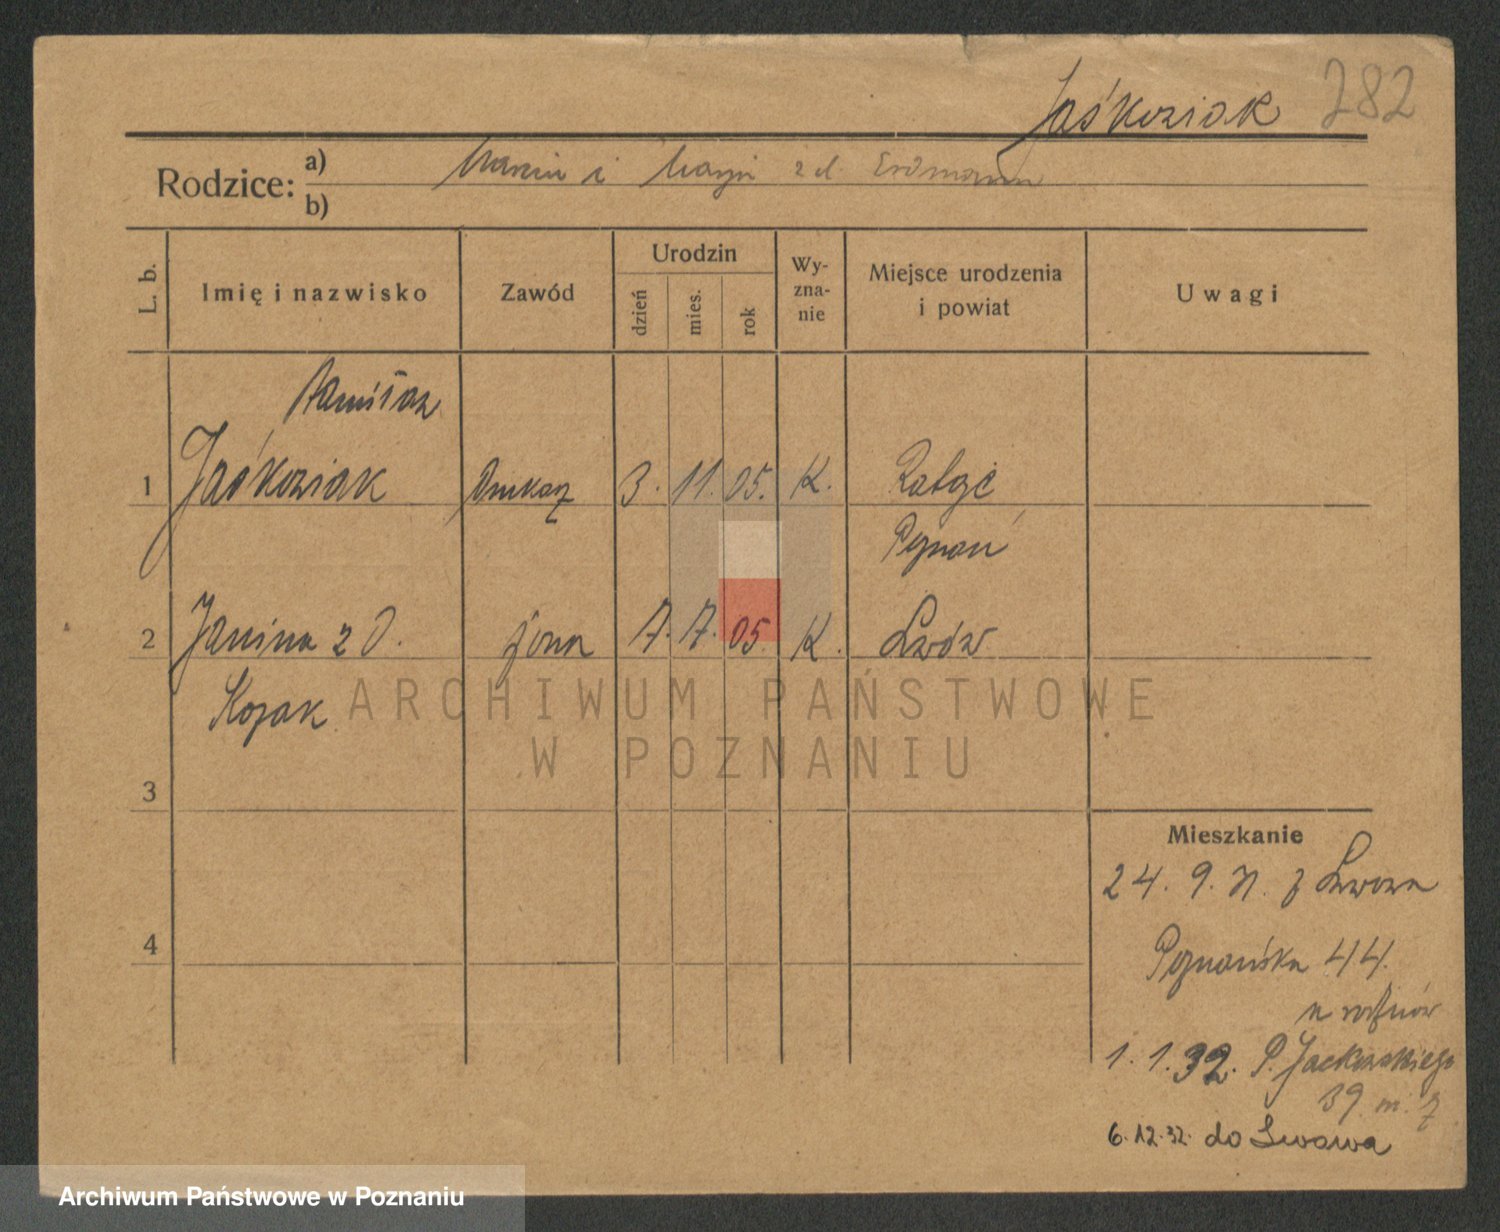 Jaśkowiak 282
Rodzice: a) Marcin i Maryi z d. Erdmann
b)
L. b. Imię i nazwisko Zawód Urodzin dzień mies. rok Wy-zna-nie Miejsce urodzenia i powiat Uwagi
Stanisław
1 Jaśkowiak Drukarz 3. 11. 05. K.
Poznań
2 Janina z D. żona 7. 7. 05. K. Lwów
Kozak
3
Mieszkanie
24. 9. 31. z Lwowa
4 Poznańska 44.
u rodziców
1. 1. 32. P. Jackowskiego
39 m. 7
6.12.32. do Lwowa
ARCHIWUM PAŃSTWOWE
W POZNANIU
Archiwum Państwowe w Poznaniu